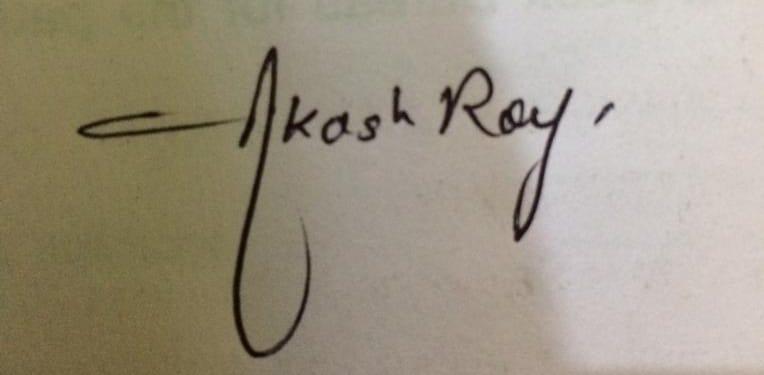 Akash Roy.